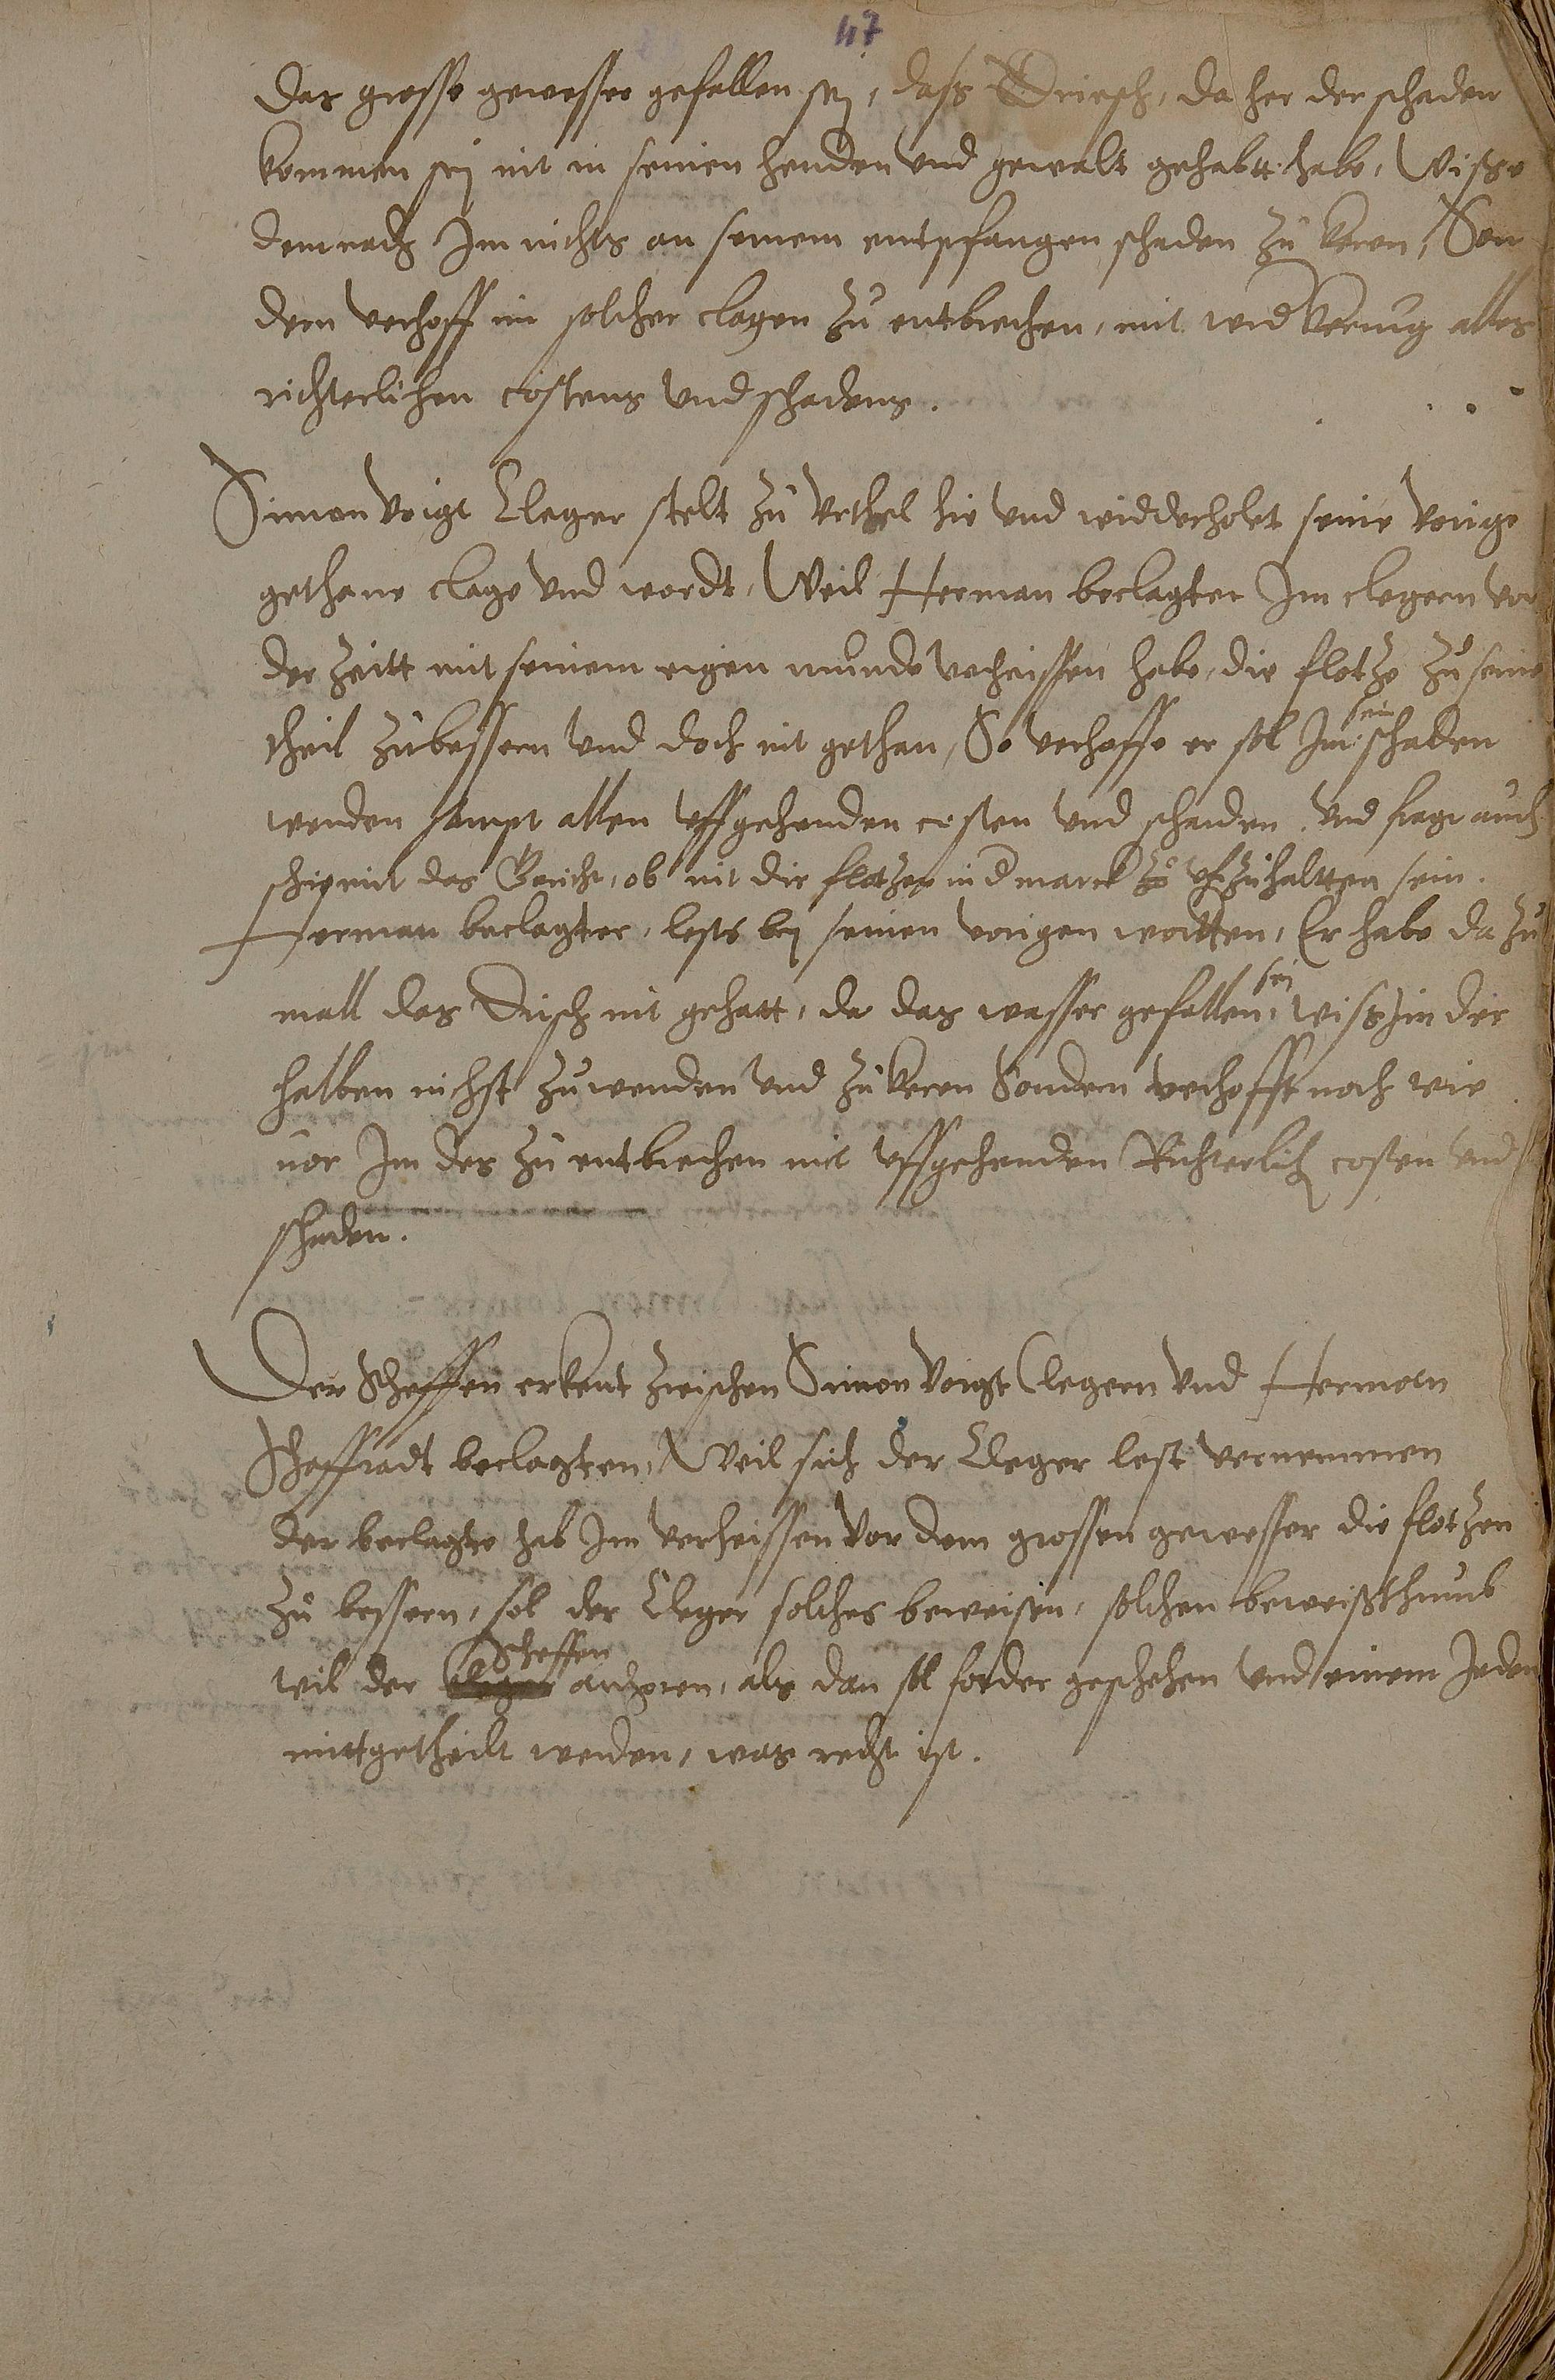 47
das grosse gewesser gefallen sey, dass Driesch, da her der schaden
kommen sey nit in seinen henden und gewalt gehabtt habe, Wisse
demnach Im nichts an seinem entpfangen schaden zu keren, Son
dern verhoff im solcher clagen zu entbrechen, mit widkerung alles
richterlichen costens und schadens.
Simon Voigt Cleger stelt zu Urthel hie und widderholet seine vorige
gethane clage und wordt, Weil Herman beclagter Im clegern vor
der zeitt mit seinem eigen munde verheissen habe, die flotze zu seine
theil zubessern und doch nit gethan, So verhoffe er sol Im sein schaden
wenden sampt allen uffgehenden costen und schaden, und fragt auch
das Gericht, ob nit die flotzen in d marck zu uf zuhaltten sein.
Herman beclagter, lests bey seinen vorigen wortten, Er habe da zu
mall das Drisch nit gehatt, da das wasser gefallen sei, wiss im der
halben nichst zuwenden und zu keren Sondern verhofft noch wie
vor Im des zu entbrechen mit uffgehenden Richterlich costen und
schaden.
Der Scheffen erkent zwischen Simon Voigt Clegern und Herman
Schaffradt beclagten, Weil sich der Cleger lest vernemmen
der beclagte hab Im verheissen vor dem grossen gewesser die flotzen
zu bessern, sol der Cleger solches beweisen, solchen beweissthumb
wil der Scheffen anhoren, als dan sol forder geschehen und einem Jeden
mittgetheilt werden, was recht ist.